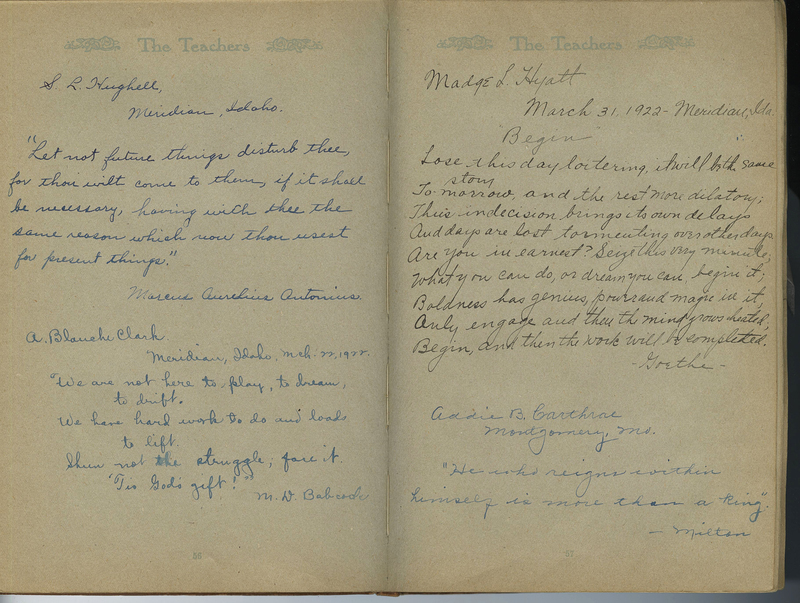 The Teachers
S. L. Hughell,
Meridian, Idaho.
"Let not future things disturb thee,
for thou wilt come to them, if it shall
be necessary, having with thee the
same reason which now thou usest
for present things."
Marcus Aurelius Antonius.
A. Blanche Clark.
Meridian, Idaho, Mch-22, 1922.
"We are not here to play, to dream,
to drift.
We have hard work to do and loads
to lift.
Shun not the struggle; face it.
'Tis God's gift!"
M. D. Babcock
56
The Teachers
Madge L. Hyatt
March 31, 1922 - Meridian, Ida.
"Begin"
Lose this day loitering, it will be the same
story
To morrow, and the rest more dilatory;
This indecision brings its own delays
And days are lost tormenting over other days.
Are you in earnest? Seize this very minute;
What you can do, or dream you can, begin it;
Boldness has genius, power and magic in it,
Only engage and then the mind grows heated,
Begin, and then the work will be completed.
- Goethe -
Addie B. Carthrae
Montgomery, Mo.
"He who reigns within
himself is more than a king".
- Milton
57